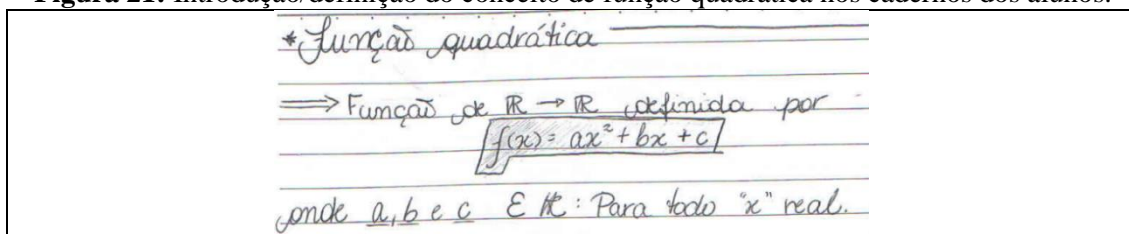 Figura 21: Introdução/definição do conceito de função quadrática nos cadernos dos alunos.
*Função quadrática
⟹ Função de ℝ → ℝ definida por
f(x) = ax² + bx + c
onde a, b e c ∈ ℝ : Para todo "x" real.